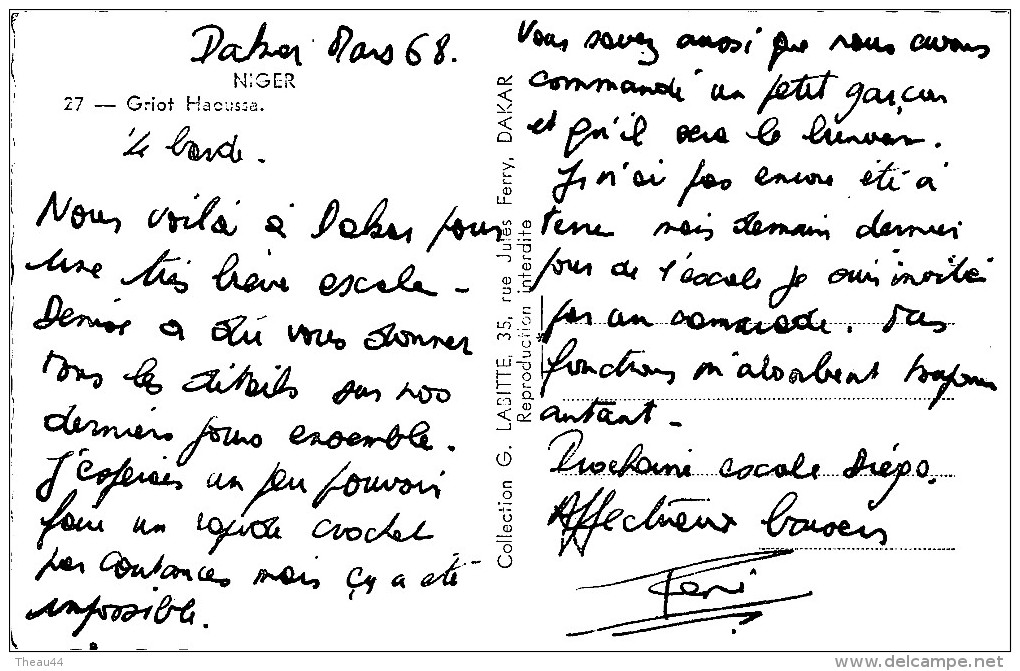 Dakar Mars 68.
NIGER
27 — Griot Haoussa.
le barde.
Nous voilà à Dakar pour
une très brève escale -
Denise a dû vous donner
tous les détails sur nos
derniers jours ensemble.
J'espérais un peu pouvoir
faire un rapide crochet
par Coutances mais ça a été
impossible.
Collection G. LABITTE, 35, rue Jules Ferry, DAKAR
Reproduction interdite
Vous savez aussi que nous avons
commandé un petit garçon
et qu'il sera le bienvenu.
Je n'ai pas encore été à
terre mais demain dernier
jour de l'escale je suis invité
par un camarade. Mes
fonctions m'absorbent toujours
autant -
Prochaine escale Diégo.
Affectueux baisers
Theau44
www.delcampe.net